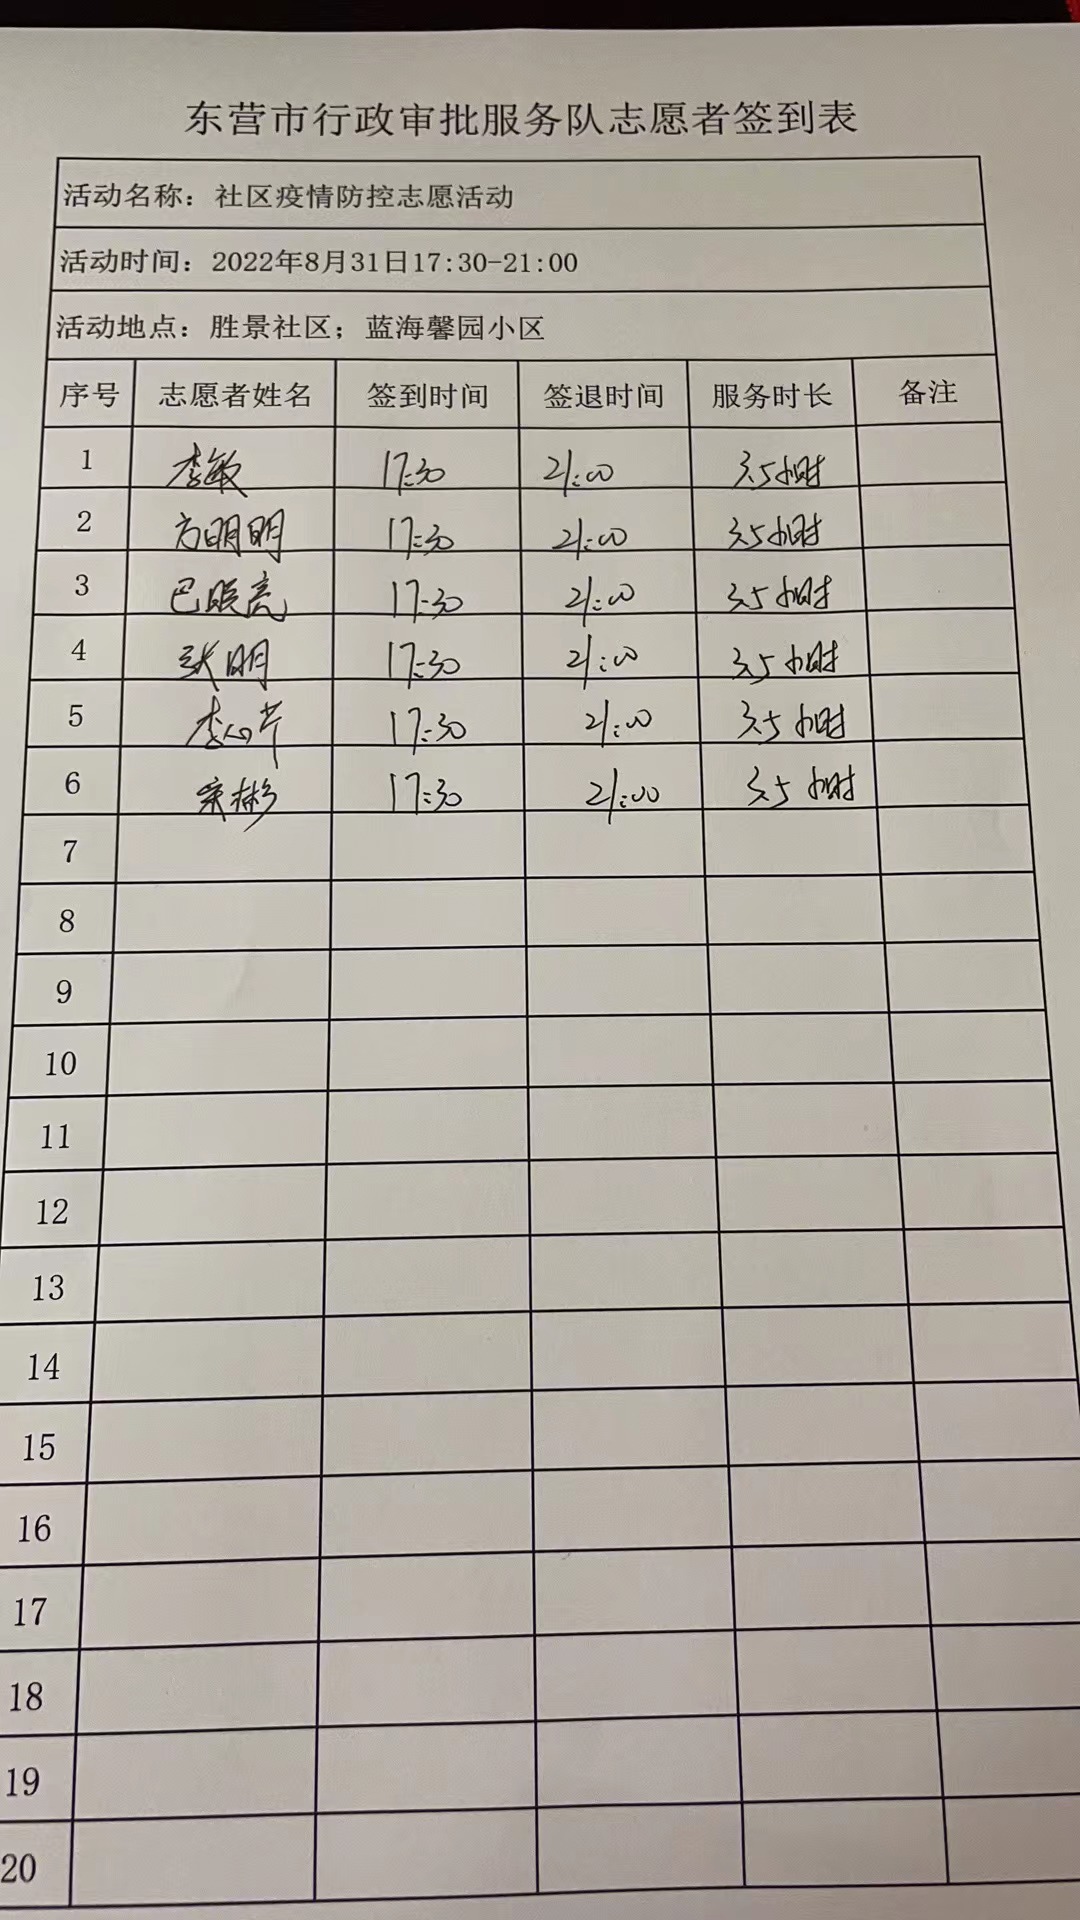 东营市行政审批服务队志愿者签到表
活动名称：社区疫情防控志愿活动
活动时间：2022年8月31日17:30-21:00
活动地点：胜景社区；蓝海馨园小区
序号 志愿者姓名 签到时间 签退时间 服务时长 备注
1 李敏 17:30 21:00 3.5小时
2 方明明 17:30 21:00 3.5小时
3 巴晓亮 17:30 21:00 3.5小时
4 张明 17:30 21:00 3.5小时
5 李 17:30 21:00 3.5小时
6 宋彬 17:30 21:00 3.5小时
7
8
9
10
11
12
13
14
15
16
17
18
19
20